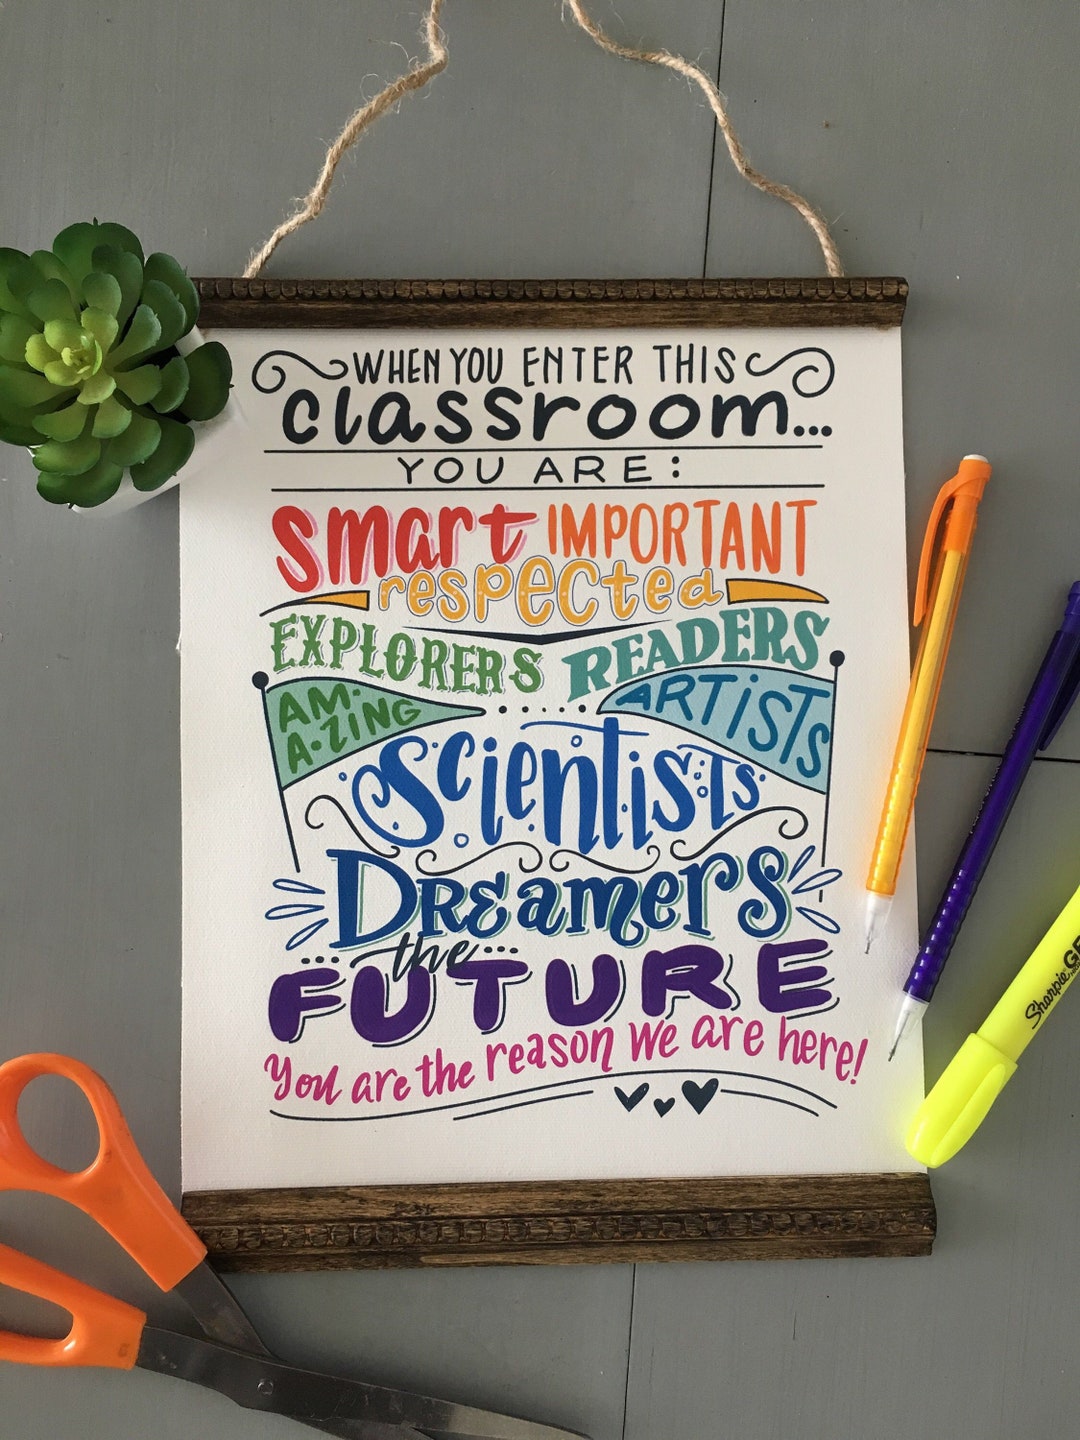 WHEN YOU ENTER THIS
classroom...
YOU ARE:
smart IMPORTANT
respected
EXPLORERS READERS
AM·
A·ZING
ARTISTS
Scientists
DREamers
...the...
FUTURE
You are the reason we are here!
Sharpie